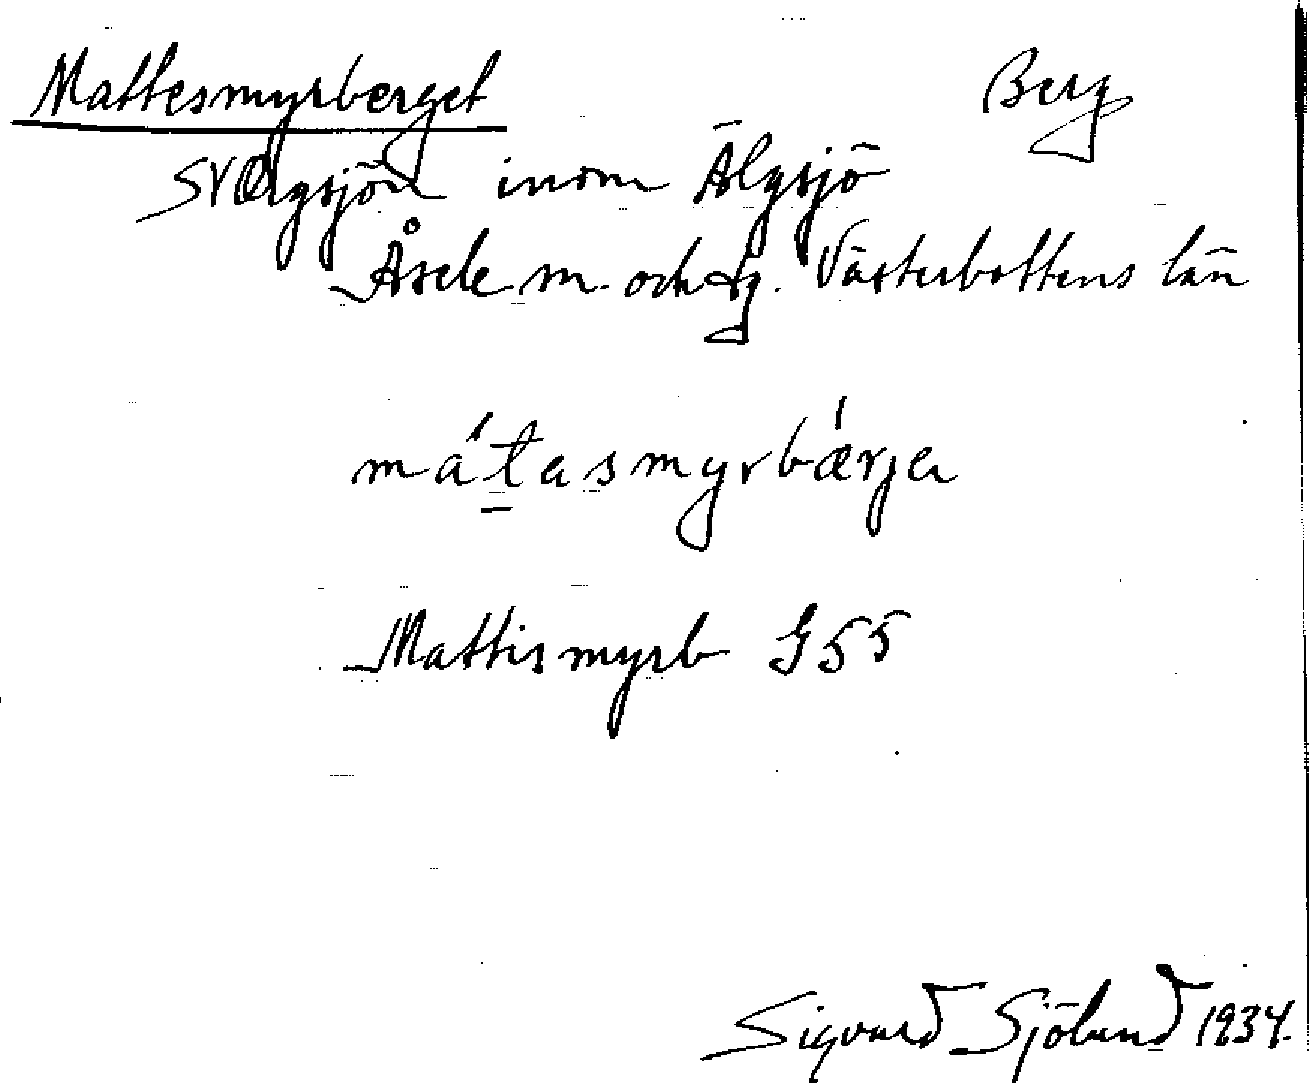 Mattesmyrberget Berg
SV Örgsjön inom Älgsjö
Åsele sn. och tg. Västerbottens län
mátasmyrbǽrjen
Mattismyrb G55
Sigvard Sjölund 1934.